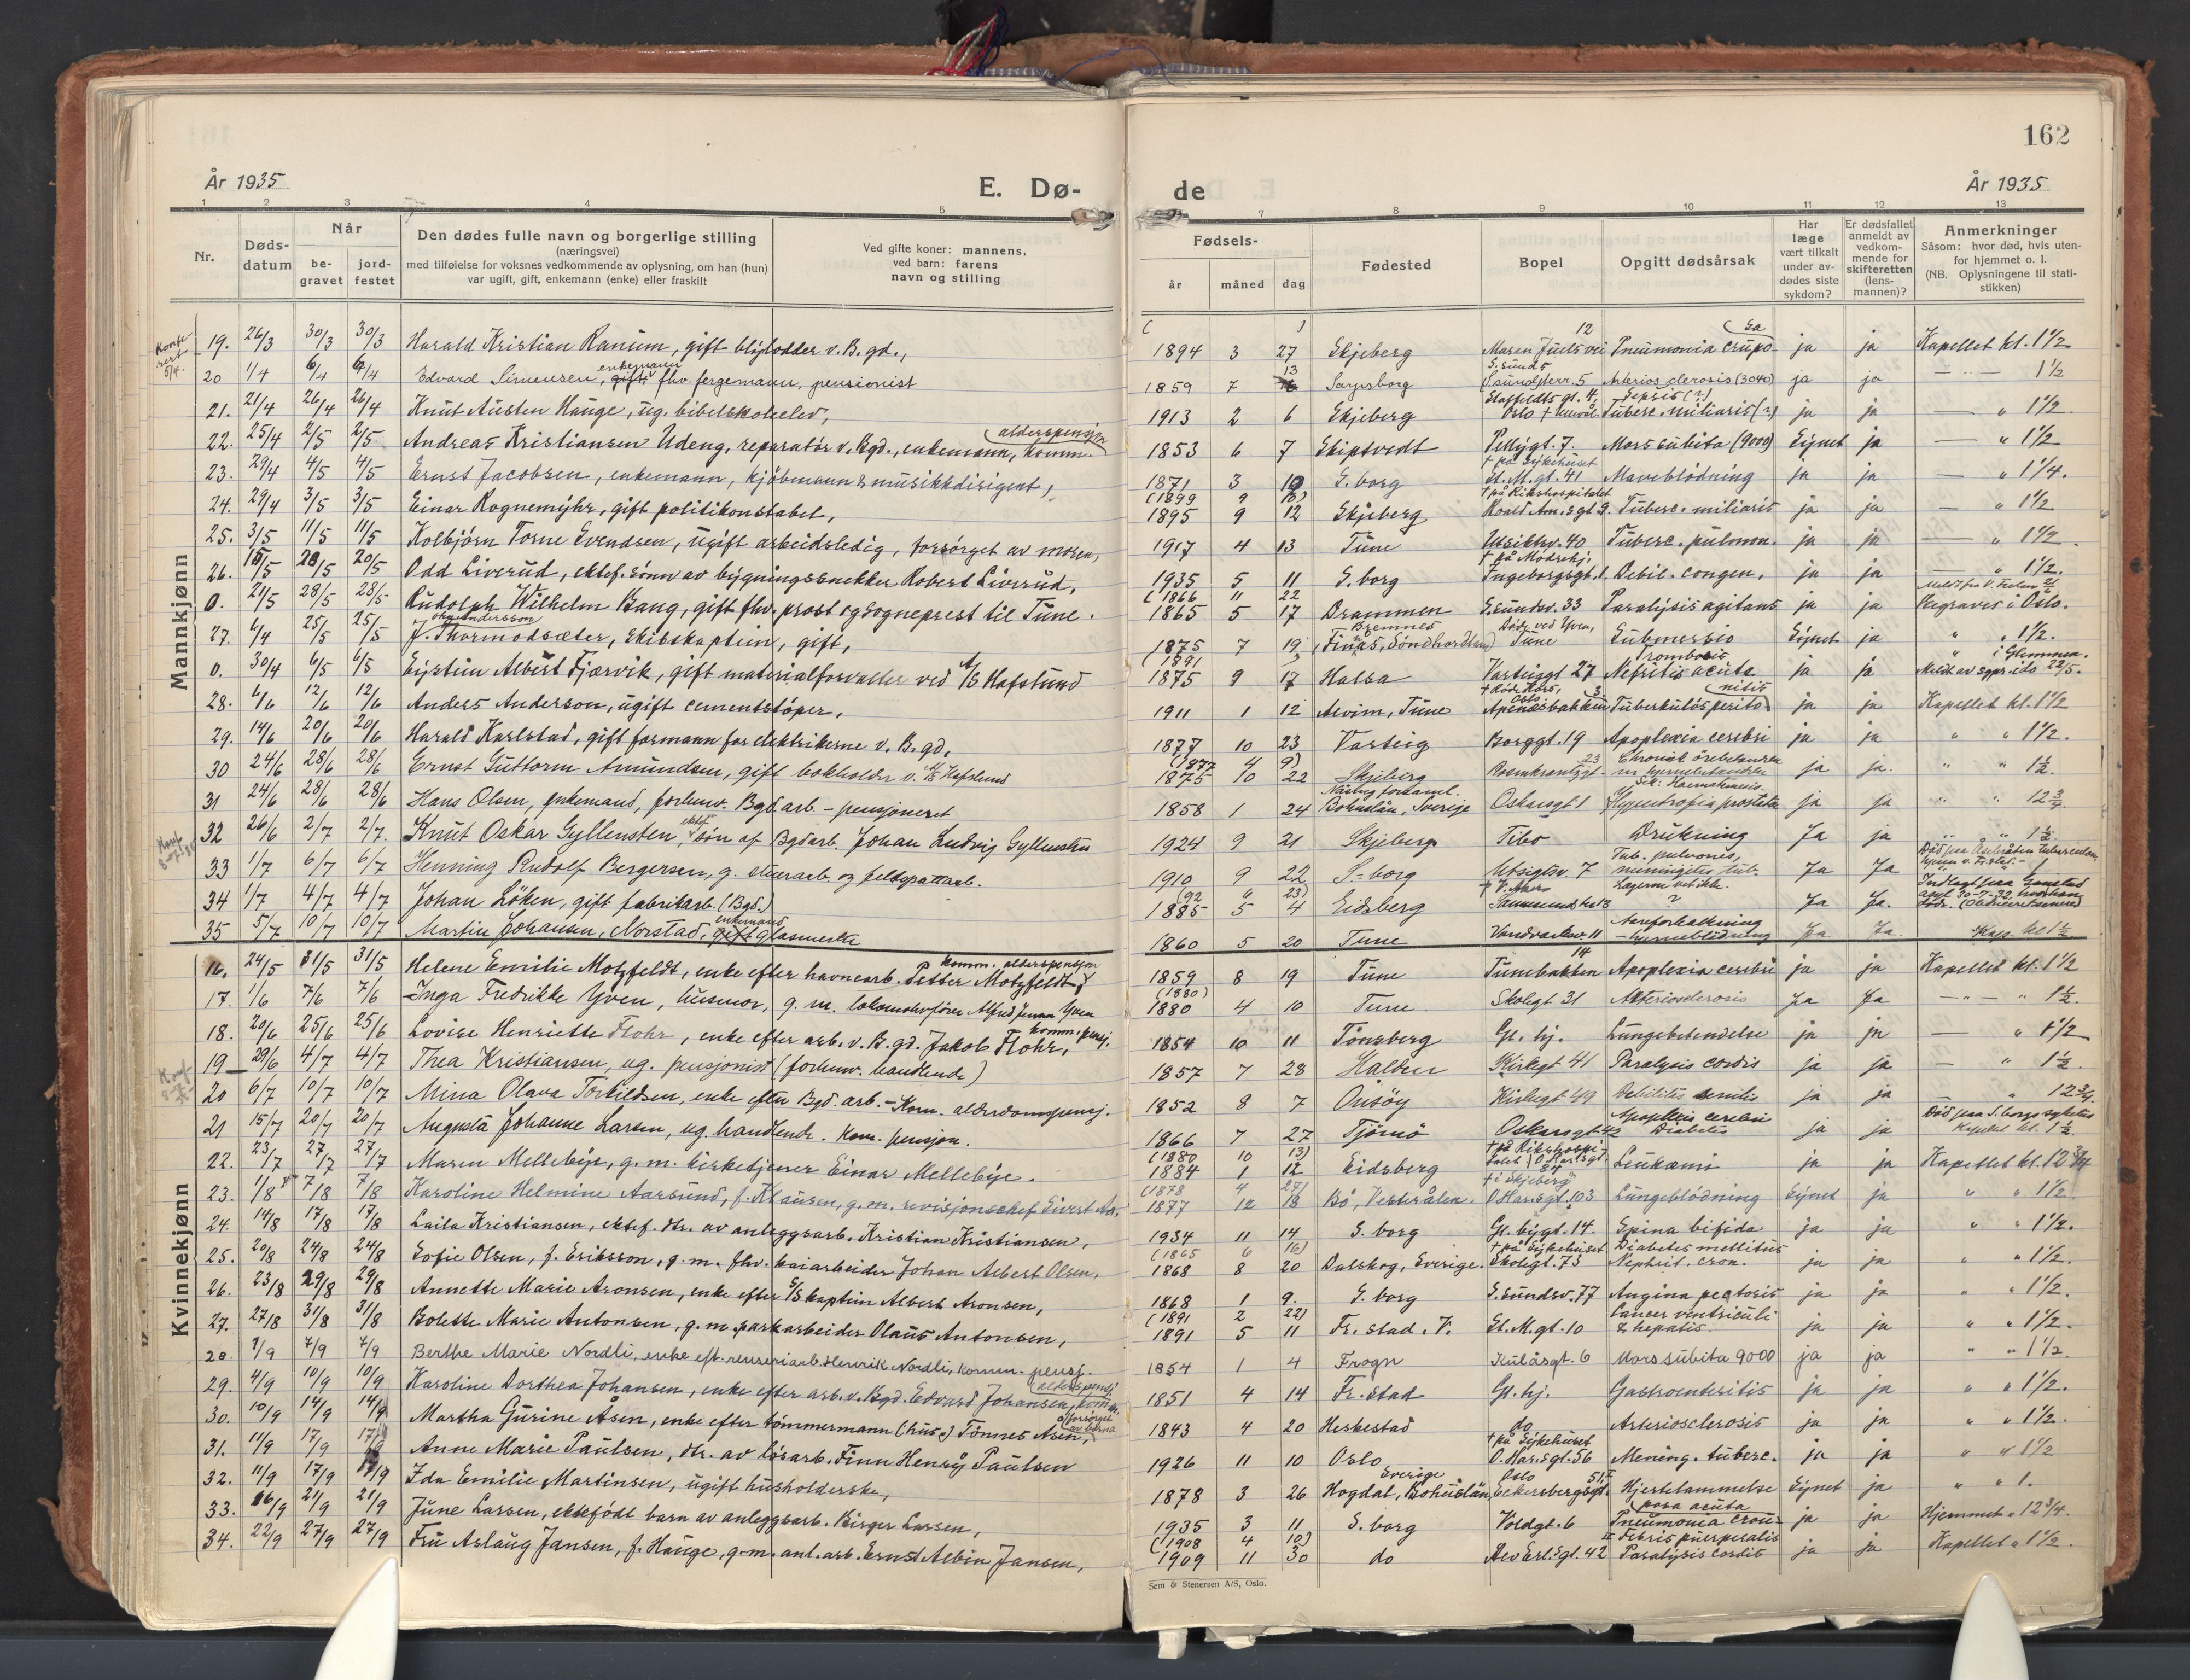 162
År 1935
E. Dø-
de
År 1935
1 2 3 4 5 7 8 9 10 11 12 13
Nr.
Døds-
datum
Når
be-
gravet
jord-
festet
Den dødes fulle navn og borgerlige stilling
(næringsvei)
med tilføielse for voksnes vedkommende av oplysning, om han (hun)
var ugift, gift, enkemann (enke) eller fraskilt
Ved gifte koner: mannens,
ved barn: farens
navn og stilling
Fødsels-
år måned dag
Fødested
Bopel
Opgitt dødsårsak
Har
læge
vært tilkalt
under av-
dødes siste
sykdom?
Er dødsfallet
anmeldt av
vedkom-
mende for
skifteretten
(lens-
mannen)?
Anmerkninger
Såsom: hvor død, hvis uten-
for hjemmet o. l.
(NB. Oplysningene til stati-
stikken)
Mannkjønn
19. 26/3 30/3 30/3 Harald Kristian Ranum, gift blylodder v. B. gd., 1894 3 27 Skjeberg Maren Juels vei 12 Pneumonia crupo sa ja ja Kapellet kl. 1 1/2
20 1/4 6/4 6/4 Edvard Simensen, enkemann fhv. fergemann, pensionist 1859 7 13 Sarpsborg Arterios clerosis (3040) ja ja 1 1/2
21. 21/4 26/4 26/4 Knut Austen Hauge, ug. bibelskoleelev, 1913 2 6 Skjeberg Staffeldts gt. 4, Oslo Sepsis (?) Tuberc. miliaris (?) ja ja " 1 1/2
22. 25/4 2/5 2/5 Andreas Kristiansen Udeng, reparatør v. Bgd., enkemann, komm. alderspensjon 1853 6 7 Skiptvedt Pellygt. 7. Mors subita (9000) Synet ja " 1 1/2
23. 29/4 4/5 4/5 Ernst Jacobsen, enkemann, kjøbmann & musikkdirigent, 1871 3 10 S. borg † på Sykehuset St. M. gt. 41 Maveblødning ja ja " 1 1/4.
24. 29/4 3/5 3/5 Einar Rognemyhr, gift politikonstabel, (1899 9 18) 1895 9 12 Skjeberg † på Rikshospitalet Roald Am.s gt 9. Tuberc. miliaris ja ja " 1 1/2
25. 3/5 11/5 11/5 Kolbjørn Torne Svendsen, ugift arbeidsledig, forsørget av moren, 1917 4 13 Tune Utsiktsv. 40 Tuberc. pulmon. ja ja " 1 1/2.
26. 15/5 20/5 20/5 Odd Liverud, ektef. sønn av bygningssnekker Robert Liverud, 1935 5 11 S. borg † på Mødrehj. Ingeborgsgt. 1. Debil. congen. ja ja " 1 1/2.
0. 21/5 28/5 28/5 Rudolph Wilhelm Bang, gift fhv. prost og sogneprest til Tune. (1866 11 22 1865 5 17 Drammen S.sundsv. 33 Paralysis agitans ja ja Begraves i Oslo.
27. 6/4 25/5 25/5 J. Thormodsæter, skibskaptein, gift, 1875 7 19 Bremnes (Finås, Søndhordland) Tune Submersio Synet ja " " 1 1/2.
0. 30/4 6/5 6/5 Eystein Albert Fjærvik, gift materialforvalter ved A/S Hafslund (1891 1875 9 17 Halsa Varteiggt 27 Trombosis Nefritis acuta ja ja i Glemmen. Meldt av sgpr. ido 22/5.
28. 6/6 12/6 12/6 Anders Anderson, ugift cementstøper, 1911 1 12 Alvim, Tune † Røde Kors, Oslo Apenæsbakken 3 Tuberkuløs peritonitis ja ja Kapellet kl. 1 1/2
29. 14/6 20/6 20/6 Harald Karlstad, gift formann for elektrikerne v. B. gd. 1877 10 23 Varteig Borggt. 19 Apoplexia cerebri ja ja " " 1 1/2.
30 24/6 28/6 28/6 Ernst Guttorm Amundsen, gift bokholder v. A/S Hafslund (1877 4 9) 1875 10 22 Skjeberg Rosenkrantzgt. 23 Chronisk ørebetendelse ja ja. " " 1 1/2.
31 24/6 28/6 28/6 Hans Olsen, enkemand, forhenv. Bgd arb – pensjoneret 1858 1 24 Bohuslän, Sverige Oskarsgt 1 Hypertrofia prostata ja ja " " 12 3/4
32 26/6 2/7 2/7. Knut Oskar Gyllensten, ektef. søn af Bgdarb. Johan Ludvig Gyllensten 1924 9 21 Skjeberg Tibo Drukning Ja ja " " 1 1/2.
33 1/7 6/7 6/7 Henning Rudolf Bergersen, g. stuerarb og feltspattarb. 1910 9 22 S-borg Utsigtsv. 7 Tub. pulmones, meningitis tub. Ja Ja
34 1/7 4/7 4/7 Johan Løken, gift fabrikarb. (Bgd.) (92 " 23) 1885 5 4 Eidsberg † V. Aker Lægerne vet ikke. ? Ja Ja.
35 5/7 10/7 10/7 Martin Johansen, Norstad, enkemand glasmester 1860 5 20 Tune Vandværksv. 11 Aareforkalkning – hjerneblødning Ja Ja Kap. kl 1 1/2
Kvinnekjønn
16. 24/5 31/5 31/5 Helene Emilie Motzfeldt, enke efter havnearb. Petter Motzfeldt, komm. alderspensjon 1859 8 19 Tune Tunebakken 14 Apoplexia cerebri ja ja Kapellet kl. 1 1/2
17. 1/6 7/6 7/6 Inga Fredrikke Yven, husmor, g. m. lokomotivfører Alfred Yven (1880) 1880 4 10 Tune Skolegt 31 Arteriosclerosis Ja Ja " 1 1/2.
18. 20/6 25/6 25/6 Lovise Henriette Flohr, enke efter arb. v. B. gd. Jakob Flohr, komm. pensj. 1854 10 11 Tønsberg Gl. hj. Lungebetendelse ja ja " 1 1/2
19 29/6 4/7 4/7 Thea Kristiansen, ug. pensjonist (forhenv. handlende) 1857 7 28 Halden Kirkegt 41 Paralysis cordis ja ja " 1 1/2.
20 6/7 10/7 10/7 Mina Olava Torkildsen, enke efter Bgd. arb. – Kom. alderdomspensj. 1852 8 7 Onsøy Kirkegt 49 Debilitis senilis ja ja " 12 3/4.
21 15/7 20/7 20/7 Augusta Johanne Larsen, ug. handlende. Kom. pensjon. 1866 7 27 Tjømø Oskarsgt 42 Apoplexis cerebri Diabetes ja ja Død paa S.borgs sykehus Kapellet kl. 1 1/2.
22. 23/7 27/7 27/7 Maren Mellebye, g. m. kirketjener Einar Mellebye. (1880 10 13) 1884 1 12 Eidsberg † på Rikshospitalet O. Har.s gt. 84 Leukæmi ja ja Kapellet kl. 12 3/4
23. 1/8 7/8 7/8 Karoline Helmine Aarsund, f. Klausen, g. m. revisjonschef Sivert Aa. (1878 4 27) 1877 12 18 Bø, Vesterålen. † i Skjeberg O. Har.s gt. 103 Lungeblødning Synet ja " " 1 1/2
24. 14/8 17/8 17/8 Laila Kristiansen, ektef. dtr. av anleggsarb. Kristian Kristiansen, 1934 11 14 S. borg Gl. bygt. 14. Spina bifida ja ja " " 1 1/2.
25. 20/8 24/8 24/8 Sofie Olsen, f. Eriksson, g. m. fhv. kaiarbeider Johan Albert Olsen, (1865 6 16) 1868 8 20 Dalskog, Sverige. † på Sykehuset Skolegt. 73 Diabetes mellitus Nephrit. cron. ja ja " " 1 1/2.
26. 23/8 29/8 29/8 Annette Marie Aronsen, enke efter S/S kaptein Albert Aronsen, 1868 1 9. S. borg S.sundsv. 77 Angina pectoris ja ja " " 1 1/2.
27. 27/8 31/8 31/8 Bolette Marie Antonsen, g. m. parkarbeider Olaus Antonsen, (1891 2 22) 1891 5 11 Fr. stad. V. St. M. gt. 10 Cancer ventriculi & hepatis. ja ja " " 1 1/2.
28. 1/9 7/9 7/9 Berthe Marie Nordli, enke eft. renseriarb. Henrik Nordli, Komm. pensj. 1854 1 4 Frogn Kulåsgt. 6 Mors subita 9000 ja ja " " 1 1/2.
29. 4/9 10/9 10/9 Karoline Dorthea Johansen, enke efter arb. v. Bgd. Edvard Johansen, komm. alderspensj. 1851 4 14 Fr. stad Gl. hj. Gastroenteritis ja ja " " 1 1/2.
30. 10/9 14/9 14/9 Martha Gurine Åsen, enke efter tømmermann (hus-) Tønnes Åsen, forsørget av barna 1843 4 20 Heskestad do Arteriosclerosis ja ja " " 1 1/2.
31. 11/9 17/9 17/9 Anne Marie Paulsen, dtr. av løsarb. Finn Henry Paulsen 1926 11 10 Oslo † på Sykehuset O. Har.s gt. 56 Mening. tuberc. ja ja " " 1 1/2
32. 11/9 17/9 17/9 Ida Emilie Martinsen, ugift husholderske, 1878 3 26 Hogdal, Bohuslän, Sverige Oslo Eckersbergsgt. 51 I Hjertelammelse Synet ja " " 1.
33. 16/9 21/9 21/9 June Larsen, ektefødt barn av anleggsarb. Birger Larsen, 1935 3 11 S. borg Voldgt. 6 Pneumonia crouposa acuta ja ja Hjemmet " 12 3/4.
34. 22/9 27/9 27/9 Fru Aslaug Jansen, f. Hauge, g. m. anl. arb. Ernst Albin Jansen, (1908 4 10) 1909 11 30 do Alv Erl.s gt. 42 Febris puerperalis Paralysis cordis ja ja Kapellet " 1 1/2.
Sem & Stenersen A/S, Oslo.